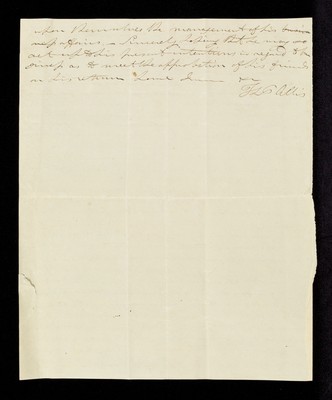 upon themselves the management of his busi-
ness affairs, & sincerely hoping that he may so
act up to his present intentions in regard to
as to meet the approbation of his friends
on his return home I am &c
Th P Ellis